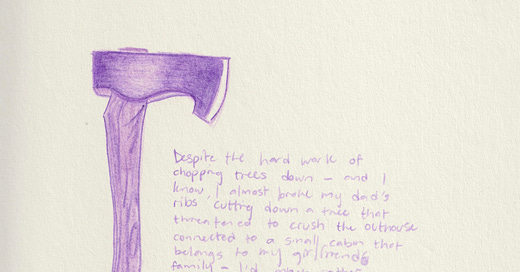 Despite the hard work of
chopping trees down – and I
know, I almost broke my dad's
ribs cutting down a tree that
threatened to crush the outhouse
connected to a small cabin that
belongs to my girlfriend's
family – I'd much rather